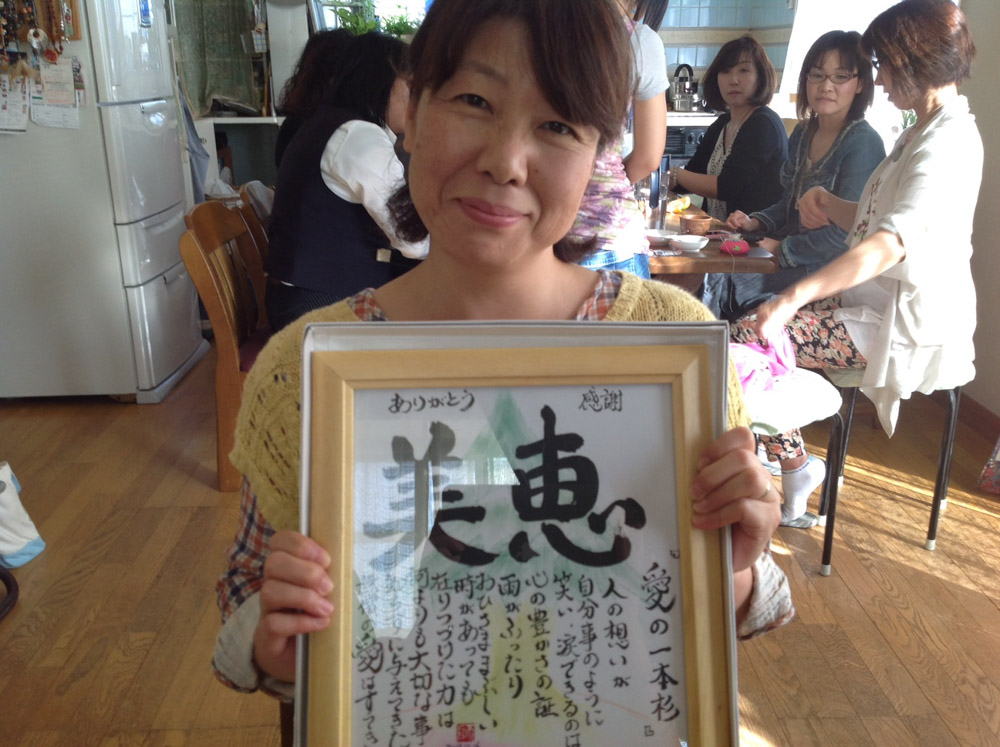 ありがとう
感謝
美恵
『愛の一本杉』
人の想いが
自分事のように
笑い、涙できるのは
心の豊かさの証
雨がふったり
おひさままぶしい
時があっても
在りつづけた力は
何よりも大切な事
に与えてきた
の愛はすてき